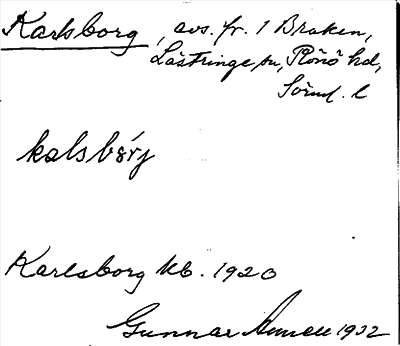 Karlsborg, avs. fr. 1 Braken,
Lästringe sn, Rönö hd,
Södml. l
kalsbórj
Karlsborg kb. 1920
Gunnar 1932